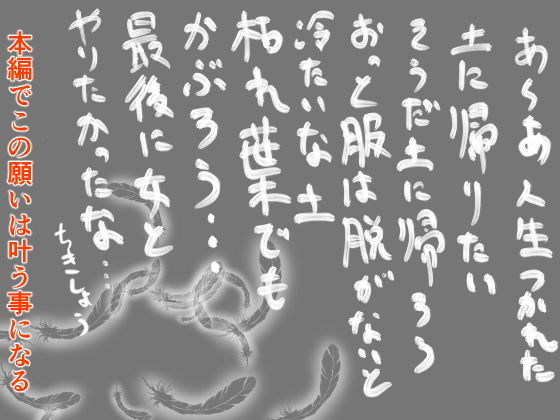 あ～あ人生つかれた
土に帰りたい
そうだ土に帰ろう
おっと服は脱がないと
冷たいな土
枯れ葉でも
かぶろう・・・
最後に女と
やりたかったな・・・
ちきしょう
本編でこの願いは叶う事になる